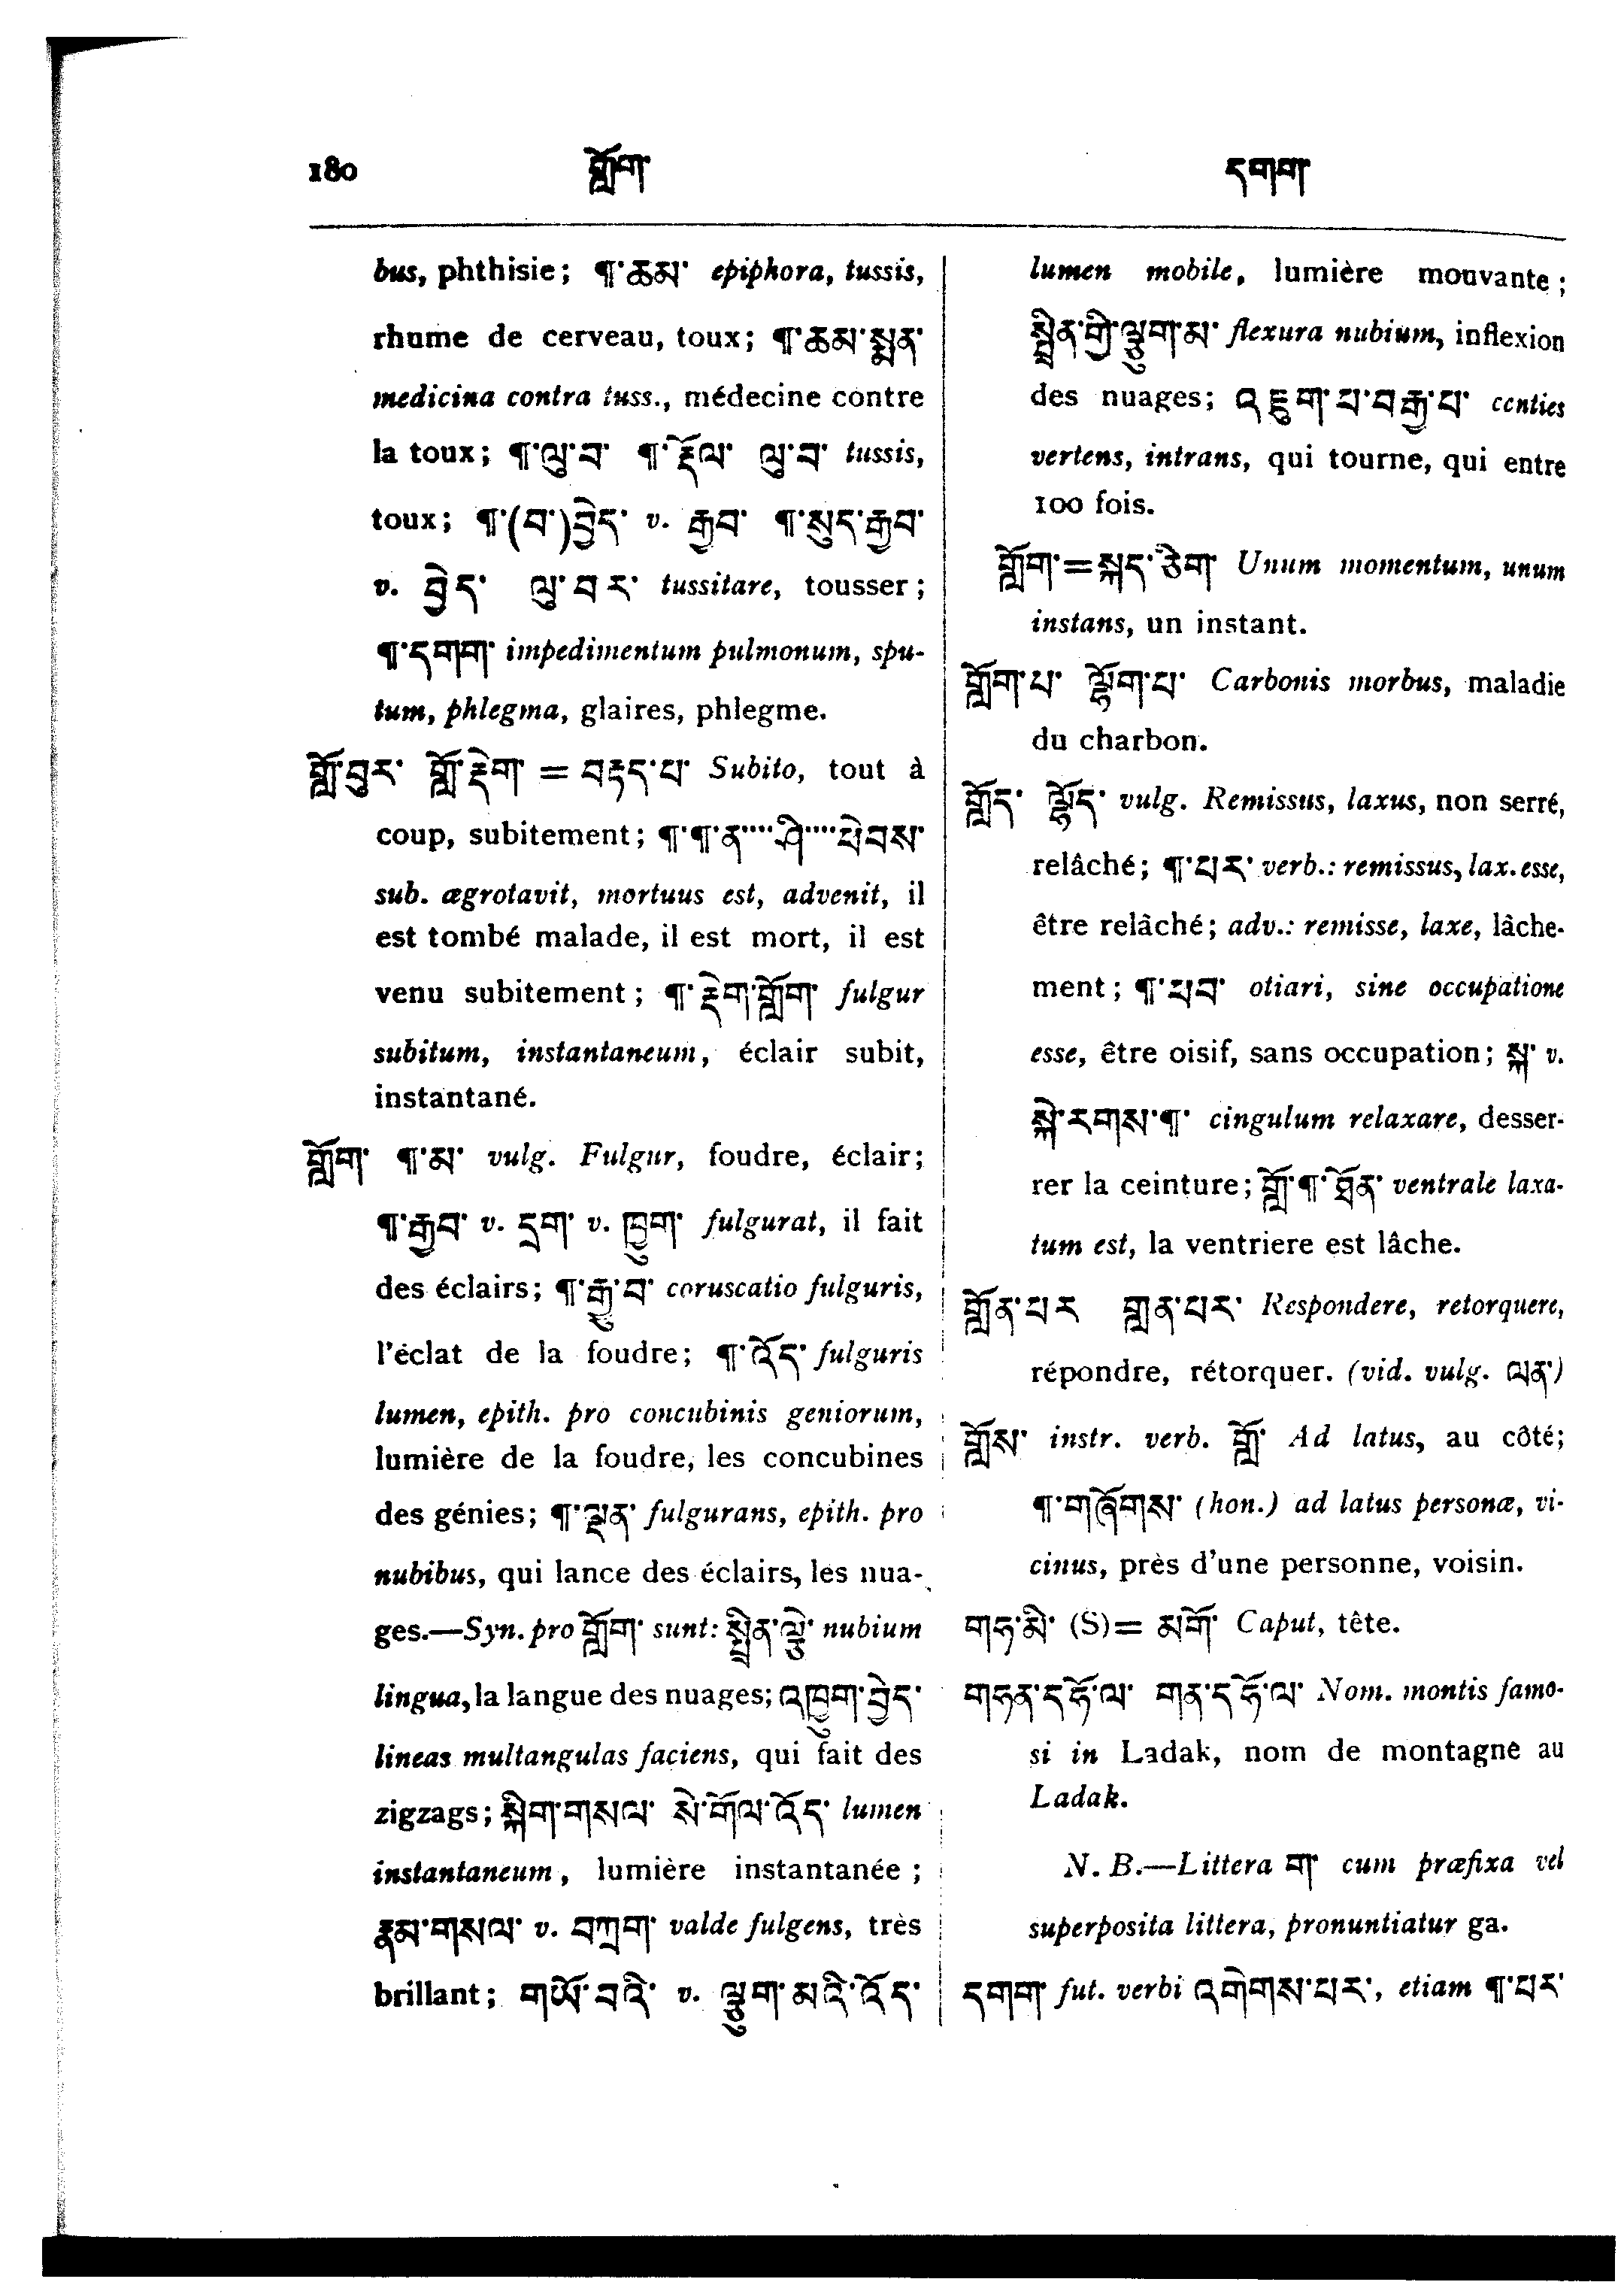 180 གློག་ དགག་
bus, phthisie; ¶་ཆམ་ epiphora, tussis,
rhume de cerveau, toux; ¶་ཆམ་སྨན་
medicina contra tuss., médecine contre
la toux; ¶་ལུ་བ་ ¶་རྡོལ་ ལུ་བ་ tussis,
toux; ¶་(བ་)བྱེད་ v. རྒྱབ་ ¶་སུད་རྒྱབ་
v. བྱེད་ ལུ་བར་ tussitare, tousser;
¶་དགག་ impedimentum pulmonum, spu-
tum, phlegma, glaires, phlegme.
གློ་བུར་ གློ་རྡེག་ = བརྟད་པ་ Subito, tout à
coup, subitement; ¶་¶་ན་....ཤི་....ཕེབས་
sub. ægrotavit, mortuus est, advenit, il
est tombé malade, il est mort, il est
venu subitement; ¶་རྡེག་གློག་ fulgur
subitum, instantaneum, éclair subit,
instantané.
གློག་ ¶་མ་ vulg. Fulgur, foudre, éclair;
¶་རྒྱབ་ v. དྲག་ v. ཁྱུག་ fulgurat, il fait
des éclairs; ¶་རྒྱུ་བ་ coruscatio fulguris,
l'éclat de la foudre; ¶་འོད་ fulguris
lumen, epith. pro concubinis geniorum,
lumière de la foudre, les concubines
des génies; ¶་ལྡན་ fulgurans, epith. pro
nubibus, qui lance des éclairs, les nua-
ges.—Syn. pro གློག་ sunt: སྤྲིན་ལྕེ་ nubium
lingua, la langue des nuages; འཁྱུག་བྱེད་
lineas multangulas faciens, qui fait des
zigzags; སྐྲིག་གསལ་ སེ་གོལ་འོད་ lumen
instantaneum, lumière instantanée;
རྣམ་གསལ་ v. བཀྲག་ valde fulgens, très
brillant; གཡོ་བའི་ v. ལྕུག་མའི་འོད་
lumen mobile, lumière mouvante;
སྤྲིན་གྱི་ལྕུག་མ་ flexura nubium, inflexion
des nuages; འཇུག་པ་བརྒྱ་པ་ centies
vertens, intrans, qui tourne, qui entre
100 fois.
གློག་=སྐད་ཅིག་ Unum momentum, unum
instans, un instant.
གློག་པ་ ལྷོག་པ་ Carbonis morbus, maladie
du charbon.
གློད་ ལྷོད་ vulg. Remissus, laxus, non serré,
relâché; ¶་པར་ verb.: remissus, lax. esse,
être relâché; adv.: remisse, laxe, lâche-
ment; ¶་པབ་ otiari, sine occupatione
esse, être oisif, sans occupation; སྐ་ v.
སྐེ་རགས་¶་ cingulum relaxare, desser-
rer la ceinture; གློ་¶་ཐོན་ ventrale laxa-
tum est, la ventriere est lâche.
གློན་པར གླན་པར་ Respondere, retorquere,
répondre, rétorquer. (vid. vulg. ལན་)
གློས་ instr. verb. གློ་ Ad latus, au côté;
¶་གཞོགས་ (hon.) ad latus personæ, vi-
cinus, près d'une personne, voisin.
གཧ་མི་ (S)= མགོ་ Caput, tête.
གཧན་དཧོ་ལ་ གན་དཧོ་ལ་ Nom. montis famo-
si in Ladak, nom de montagne au
Ladak.
N. B.—Littera ག་ cum præfixa vel
superposita littera, pronuntiatur ga.
དགག་ fut. verbi འགེགས་པར་, etiam ¶་པར་